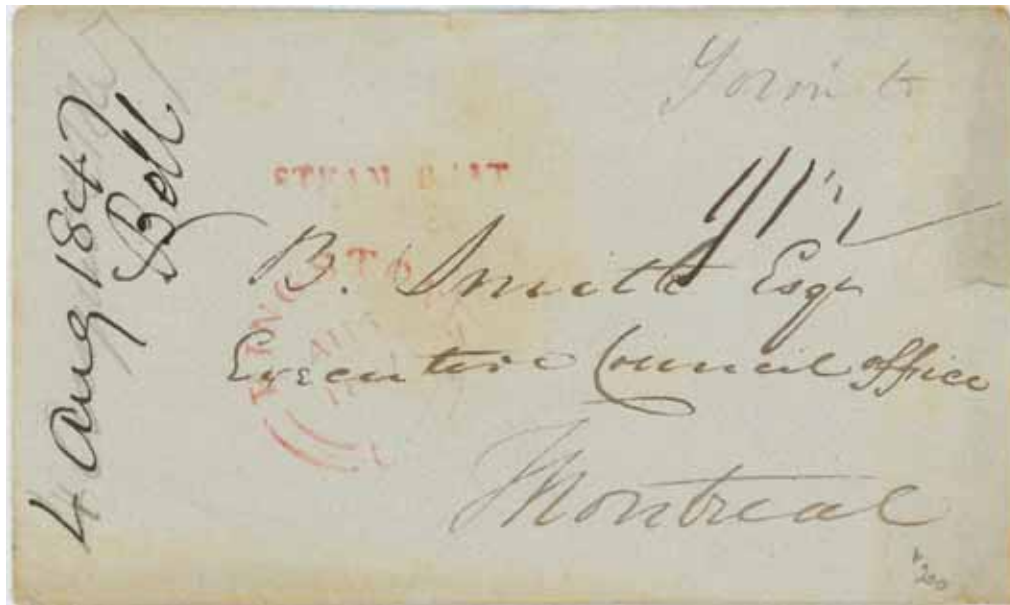 4 Aug 1847
Bell
STEAM BOAT
B. Smith Esqr
Executive Council office
Montreal
200